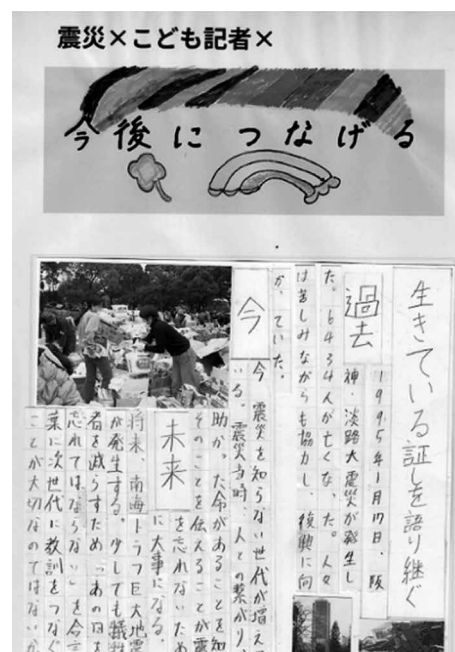 震災×こども記者×
今後につなげる
生きている証しを語り継ぐ
過去
1995年1月17日、阪
神・淡路大震災が発生し
た。6434人が亡くなった。人々
は苦しみながらも協力し、復興に向
かっていた。
今
今、震災を知らない世代が増え
いる。震災当時、人との繋がり、
助かった命があることを知
そのことを伝えることが震
を忘れないため
に大事になる。
未来
将来、南海トラフ巨大地震
が発生する。少しでも犠牲
者を減らすため「あの日を
忘れてはならない」を合言
葉に次世代に教訓をつなぐ
ことが大切なのではないか